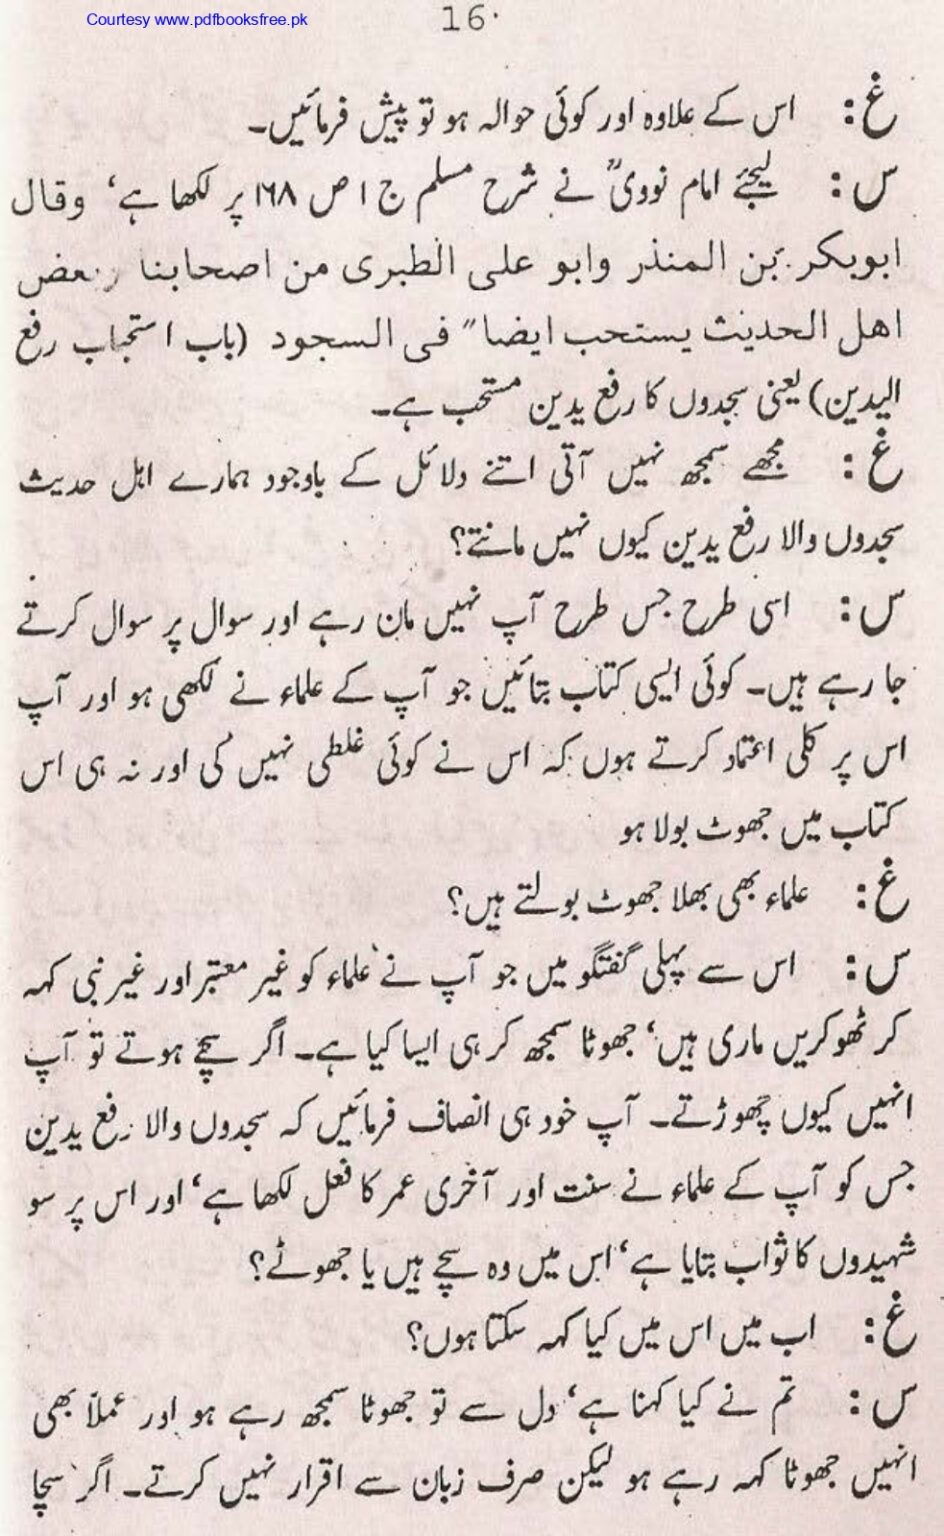 Courtesy www.pdfbooksfree.pk
16
غ : اس کے علاوہ اور کوئی حوالہ ہو تو پیش فرمائیں۔
س : لیجئے امام نوویؒ نے شرح مسلم ج ۱ ص ۱۶۸ پر لکھا ہے‘ وقال
ابوبکر بن المنذر وابو علی الطبری من اصحابنا وبعض
اھل الحدیث یستحب ایضا" فی السجود (باب استحباب رفع
الیدین) یعنی سجدوں کا رفع یدین مستحب ہے۔
غ : مجھے سمجھ نہیں آتی اتنے دلائل کے باوجود ہمارے اہل حدیث
سجدوں والا رفع یدین کیوں نہیں مانتے؟
س : اسی طرح جس طرح آپ نہیں مان رہے اور سوال پر سوال کرتے
جا رہے ہیں۔ کوئی ایسی کتاب بتائیں جو آپ کے علماء نے لکھی ہو اور آپ
اس پر کلی اعتماد کرتے ہوں کہ اس نے کوئی غلطی نہیں کی اور نہ ہی اس
کتاب میں جھوٹ بولا ہو
غ : علماء بھی بھلا جھوٹ بولتے ہیں؟
س : اس سے پہلی گفتگو میں جو آپ نے علماء کو غیر معتبر اور غیر نبی کہہ
کر ٹھوکریں ماری ہیں‘ جھوٹا سمجھ کر ہی ایسا کیا ہے۔ اگر سچے ہوتے تو آپ
انہیں کیوں چھوڑتے۔ آپ خود ہی انصاف فرمائیں کہ سجدوں والا رفع یدین
جس کو آپ کے علماء نے سنت اور آخری عمر کا فعل لکھا ہے‘ اور اس پر سو
شہیدوں کا ثواب بتایا ہے‘ اس میں وہ سچے ہیں یا جھوٹے؟
غ : اب میں اس میں کیا کہہ سکتا ہوں؟
س : تم نے کیا کہنا ہے‘ دل سے تو جھوٹا سمجھ رہے ہو اور عملاً بھی
انہیں جھوٹا کہہ رہے ہو لیکن صرف زبان سے اقرار نہیں کرتے۔ اگر سچا